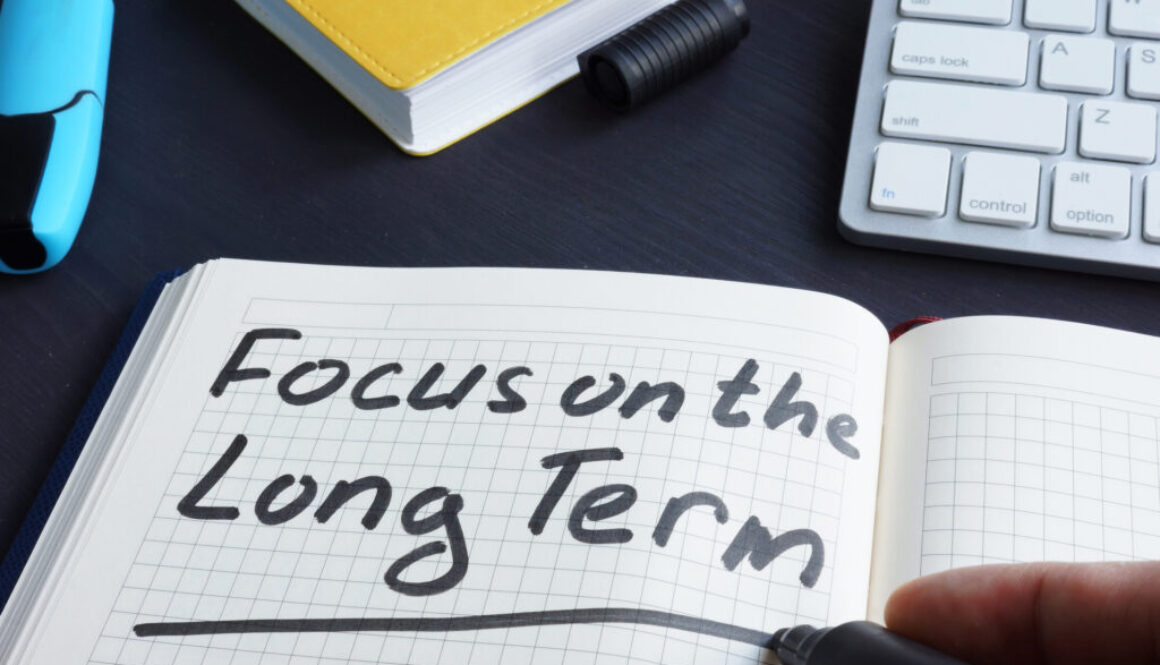 tab
W
caps lock
A
S
shift
Z
fn
control
alt
option
Focus on the
Long Term